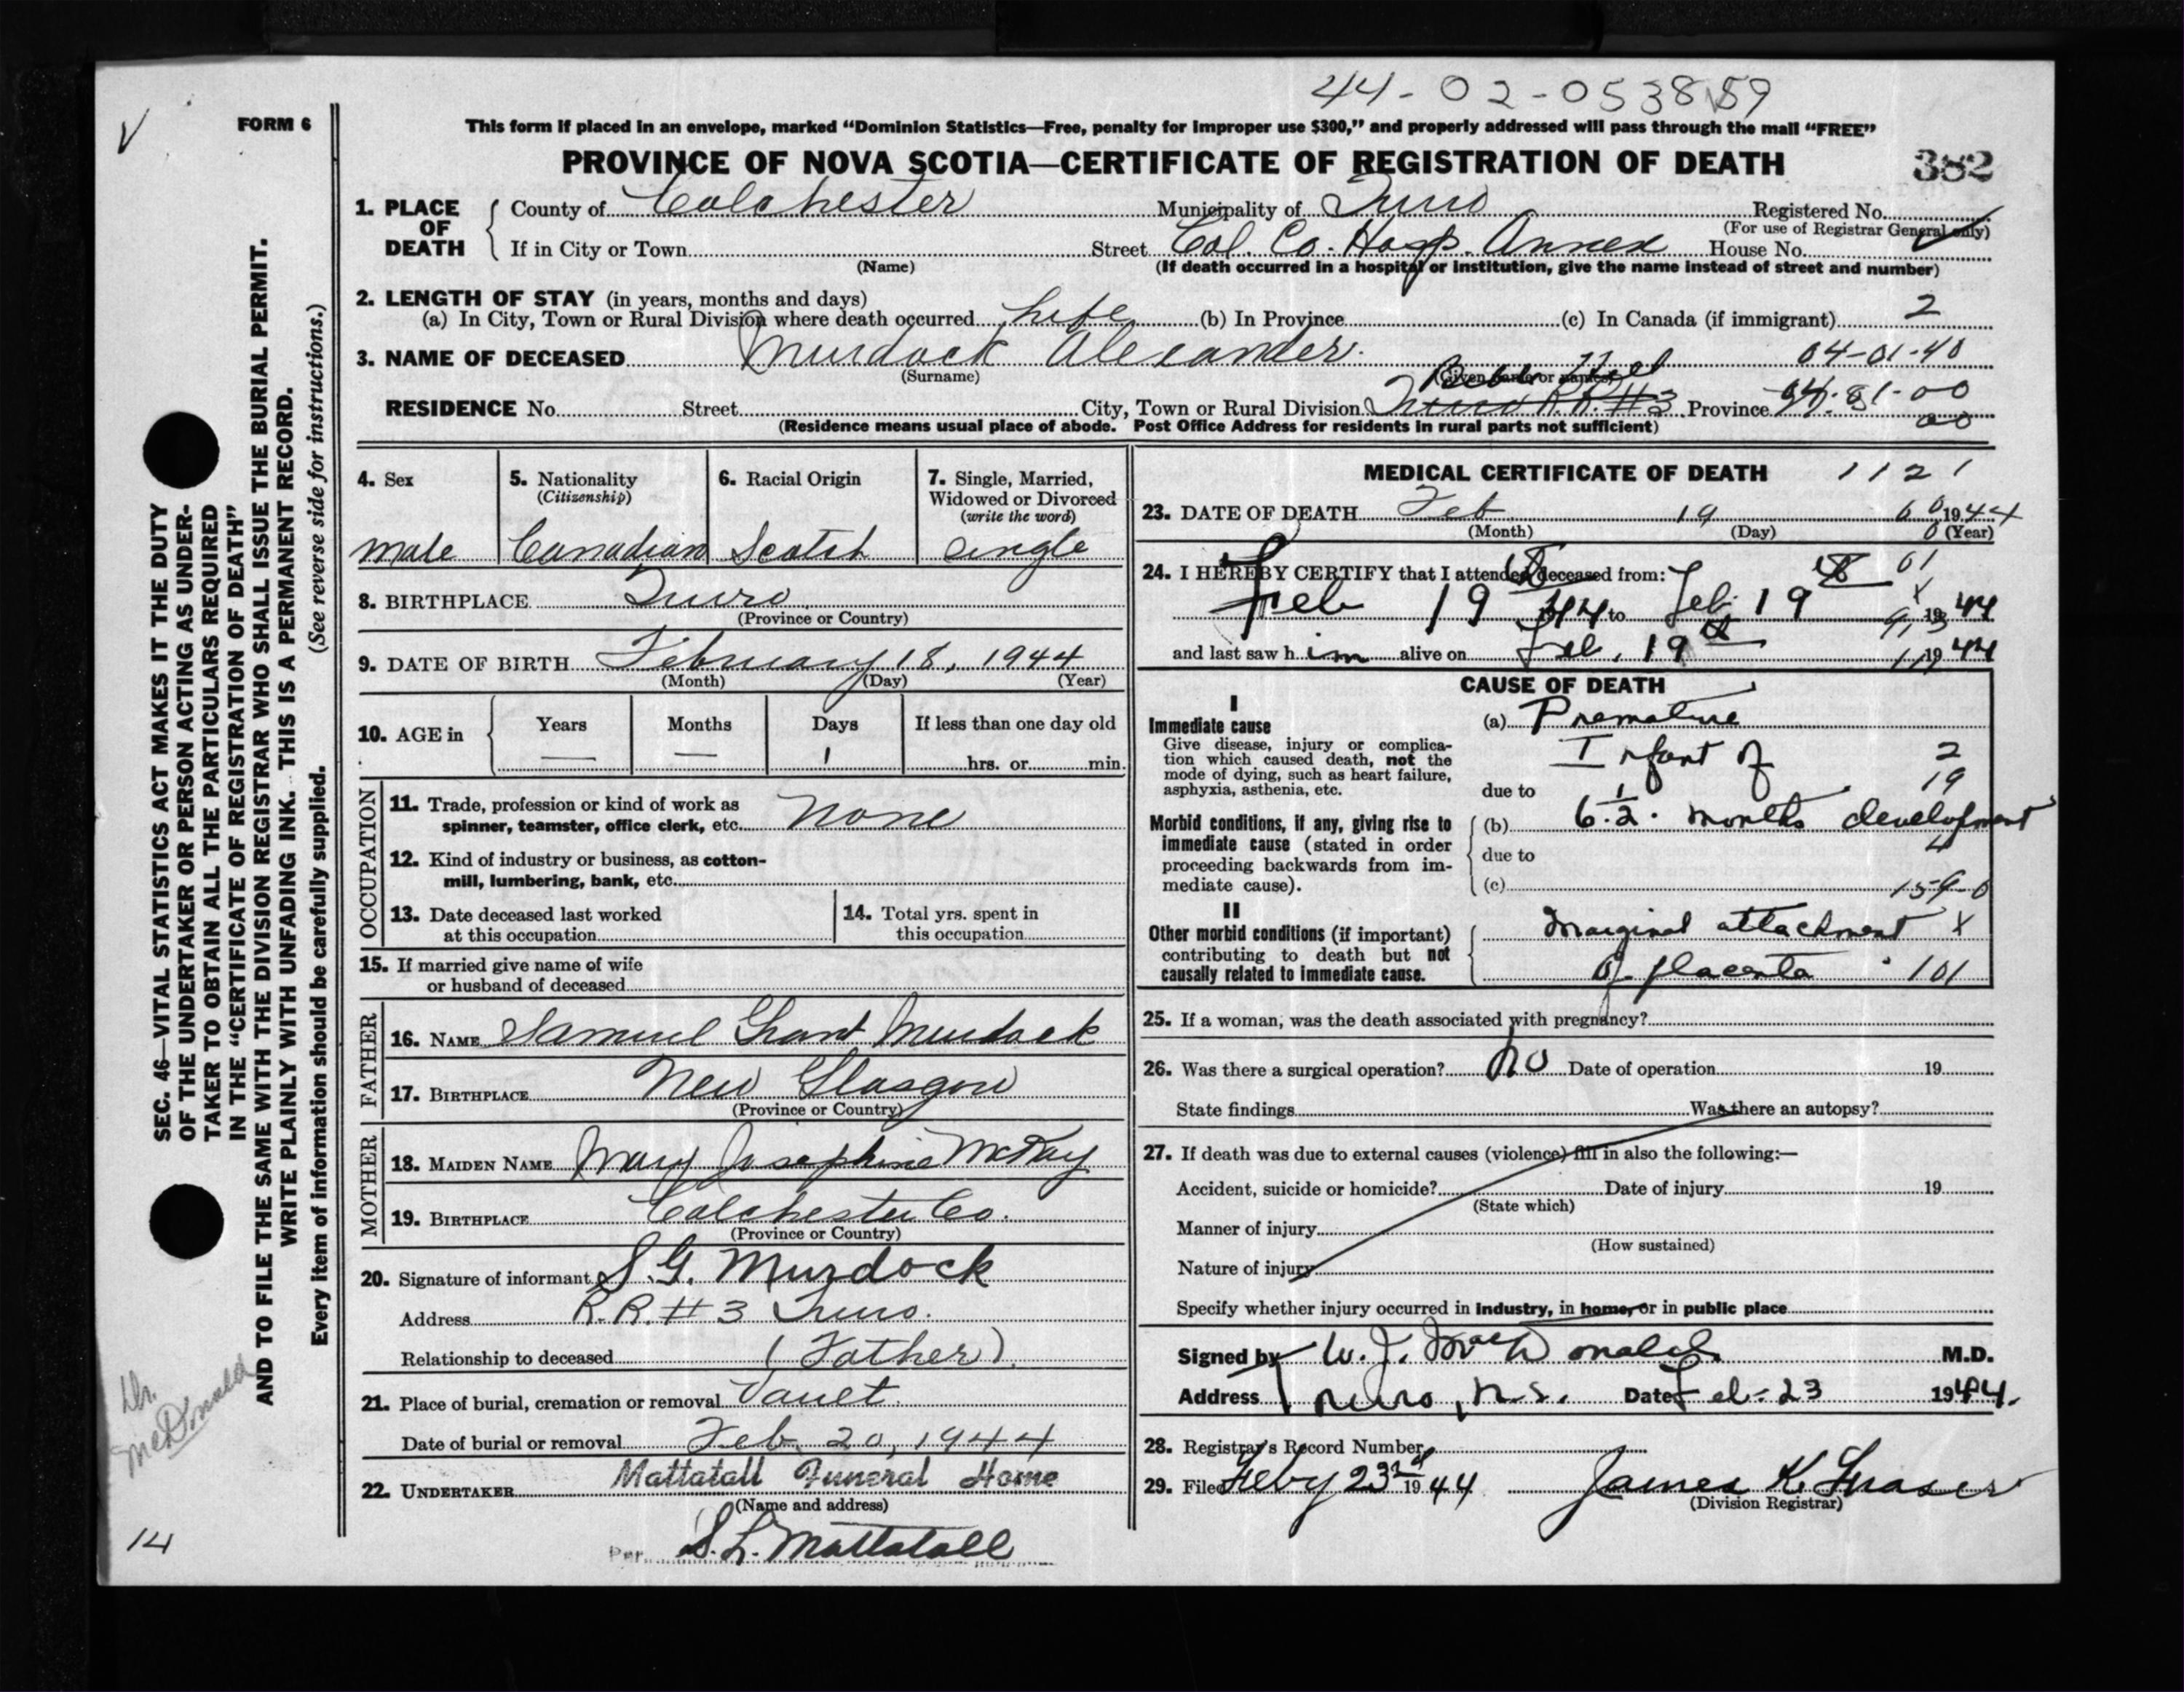 44-02-053859
FORM 6
This form if placed in an envelope, marked "Dominion Statistics—Free, penalty for improper use $300," and properly addressed will pass through the mail "FREE"
PROVINCE OF NOVA SCOTIA—CERTIFICATE OF REGISTRATION OF DEATH 382
1. PLACE OF DEATH County of Colchester Municipality of Truro Registered No.
(For use of Registrar General only)
If in City or Town Street Col. Co. Hosp. Annex House No.
(Name) (If death occurred in a hospital or institution, give the name instead of street and number)
2. LENGTH OF STAY (in years, months and days)
(a) In City, Town or Rural Division where death occurred life (b) In Province (c) In Canada (if immigrant) 2
3. NAME OF DECEASED Murdock Alexander. 04-01-40
(Surname) (Given name or names)
Hill
RESIDENCE No. Street City, Town or Rural Division Truro R.R. #3 Province
00
(Residence means usual place of abode. Post Office Address for residents in rural parts not sufficient)
4. Sex 5. Nationality (Citizenship) 6. Racial Origin 7. Single, Married, Widowed or Divorced (write the word)
male Canadian Scotch single
8. BIRTHPLACE Truro
(Province or Country)
9. DATE OF BIRTH February 18, 1944
(Month) (Day) (Year)
10. AGE in Years Months Days If less than one day old
— — 1 hrs. or min.
OCCUPATION
11. Trade, profession or kind of work as
spinner, teamster, office clerk, etc. None
12. Kind of industry or business, as cotton-
mill, lumbering, bank, etc.
13. Date deceased last worked
at this occupation
14. Total yrs. spent in
this occupation
15. If married give name of wife
or husband of deceased
FATHER
16. NAME Samuel Grant Murdock
17. BIRTHPLACE New Glasgow
(Province or Country)
MOTHER
18. MAIDEN NAME Mary Josephine McKay
19. BIRTHPLACE Colchester Co.
(Province or Country)
20. Signature of informant S. G. Murdock
Address R.R. #3 Truro.
Relationship to deceased (Father).
21. Place of burial, cremation or removal Vault.
Date of burial or removal Feb. 20, 1944
22. UNDERTAKER Mattatall Funeral Home
(Name and address)
Per. S. L. Mattatall
MEDICAL CERTIFICATE OF DEATH 1121
23. DATE OF DEATH Feb 19 1944
(Month) (Day) (Year)
24. I HEREBY CERTIFY that I attended deceased from:
Feb 19 44 to Feb. 19 1944
and last saw him alive on Feb. 19 1944
CAUSE OF DEATH
I
Immediate cause (a) Premature
Give disease, injury or complica-
tion which caused death, not the
mode of dying, such as heart failure,
asphyxia, asthenia, etc.
Infant of 2
due to 19
Morbid conditions, if any, giving rise to
immediate cause (stated in order
proceeding backwards from im-
mediate cause).
(b) 6 1/2 months development
due to 4
(c) 159-0
II
Other morbid conditions (if important)
contributing to death but not
causally related to immediate cause.
Marginal attachment X
of placenta 101
25. If a woman, was the death associated with pregnancy?
26. Was there a surgical operation? no Date of operation 19
State findings Was there an autopsy?
27. If death was due to external causes (violence) fill in also the following:—
Accident, suicide or homicide? Date of injury 19
(State which)
Manner of injury
(How sustained)
Nature of injury
Specify whether injury occurred in industry, in home, or in public place
Signed by W. J. MacDonald M.D.
Address Truro, N.S. Date Feb. 23 1944.
28. Registrar's Record Number
29. Filed Feby 23rd 1944 James K. Fraser
(Division Registrar)
SEC. 46—VITAL STATISTICS ACT MAKES IT THE DUTY
OF THE UNDERTAKER OR PERSON ACTING AS UNDER-
TAKER TO OBTAIN ALL THE PARTICULARS REQUIRED
IN THE "CERTIFICATE OF REGISTRATION OF DEATH"
AND TO FILE THE SAME WITH THE DIVISION REGISTRAR WHO SHALL ISSUE THE BURIAL PERMIT.
WRITE PLAINLY WITH UNFADING INK. THIS IS A PERMANENT RECORD.
Every item of information should be carefully supplied. (See reverse side for instructions.)
Dr. McDonald
14